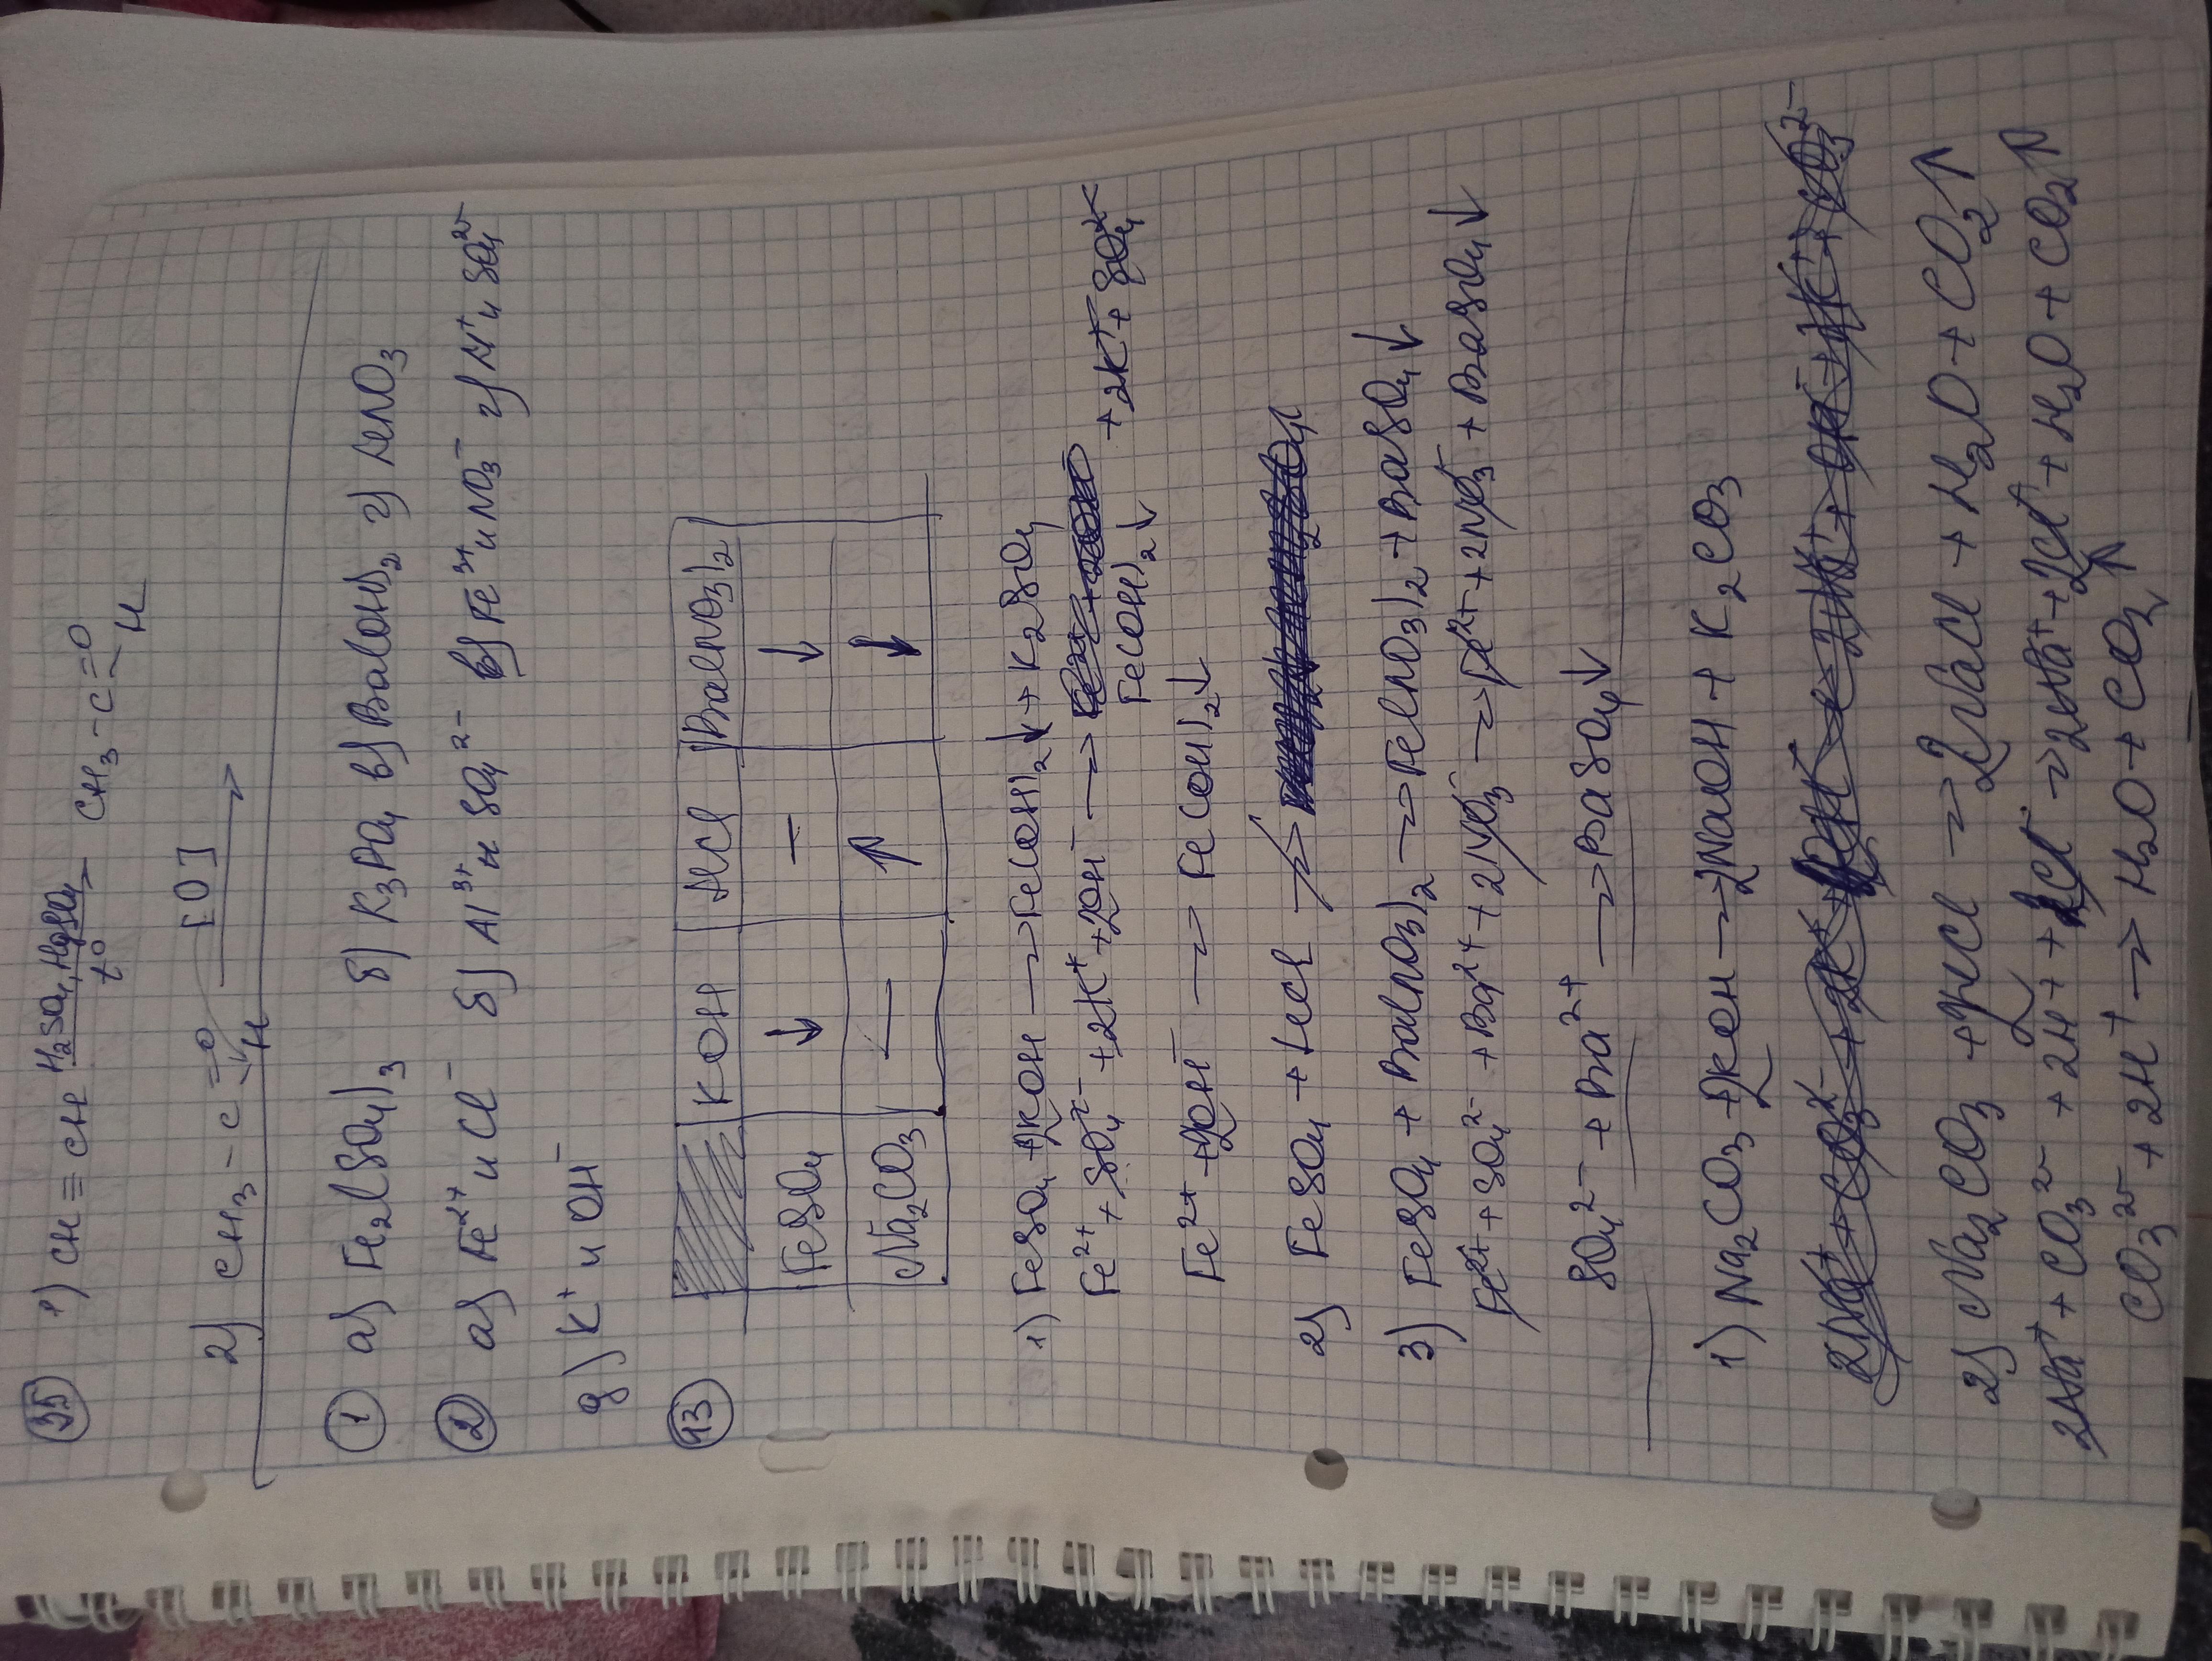 35 1) CH ≡ CH H₂SO₄, HgSO₄ t° CH₃ - C = O H
2) CH₃ - C = O H [O] →
1 а) Fe₂(SO₄)₃ б) K₃PO₄ в) Ba(OH)₂ г) HNO₃
2 а) Fe²⁺ и Cl⁻ б) Al³⁺ и SO₄²⁻ в) Fe³⁺ и NO₃⁻ г) H⁺ и SO₄²⁻
д) K⁺ и OH⁻
13 KOH HCl Ba(NO₃)₂
FeSO₄ ↓ — ↓
Na₂CO₃ — ↑ ↓
1) FeSO₄ + 2KOH → Fe(OH)₂↓ + K₂SO₄
Fe²⁺ + SO₄²⁻ + 2K⁺ + 2OH⁻ → Fe(OH)₂↓ + 2K⁺ + SO₄²⁻
Fe²⁺ + 2OH⁻ → Fe(OH)₂↓
2) FeSO₄ + HCl ↛
3) FeSO₄ + Ba(NO₃)₂ → Fe(NO₃)₂ + BaSO₄↓
Fe²⁺ + SO₄²⁻ + Ba²⁺ + 2NO₃⁻ → Fe²⁺ + 2NO₃⁻ + BaSO₄↓
SO₄²⁻ + Ba²⁺ → BaSO₄↓
1) Na₂CO₃ + 2KOH → 2NaOH + K₂CO₃
2) Na₂CO₃ + 2HCl → 2NaCl + H₂O + CO₂↑
2Na⁺ + CO₃²⁻ + 2H⁺ + 2Cl⁻ → 2Na⁺ + 2Cl⁻ + H₂O + CO₂↑
CO₃²⁻ + 2H⁺ → H₂O + CO₂↑